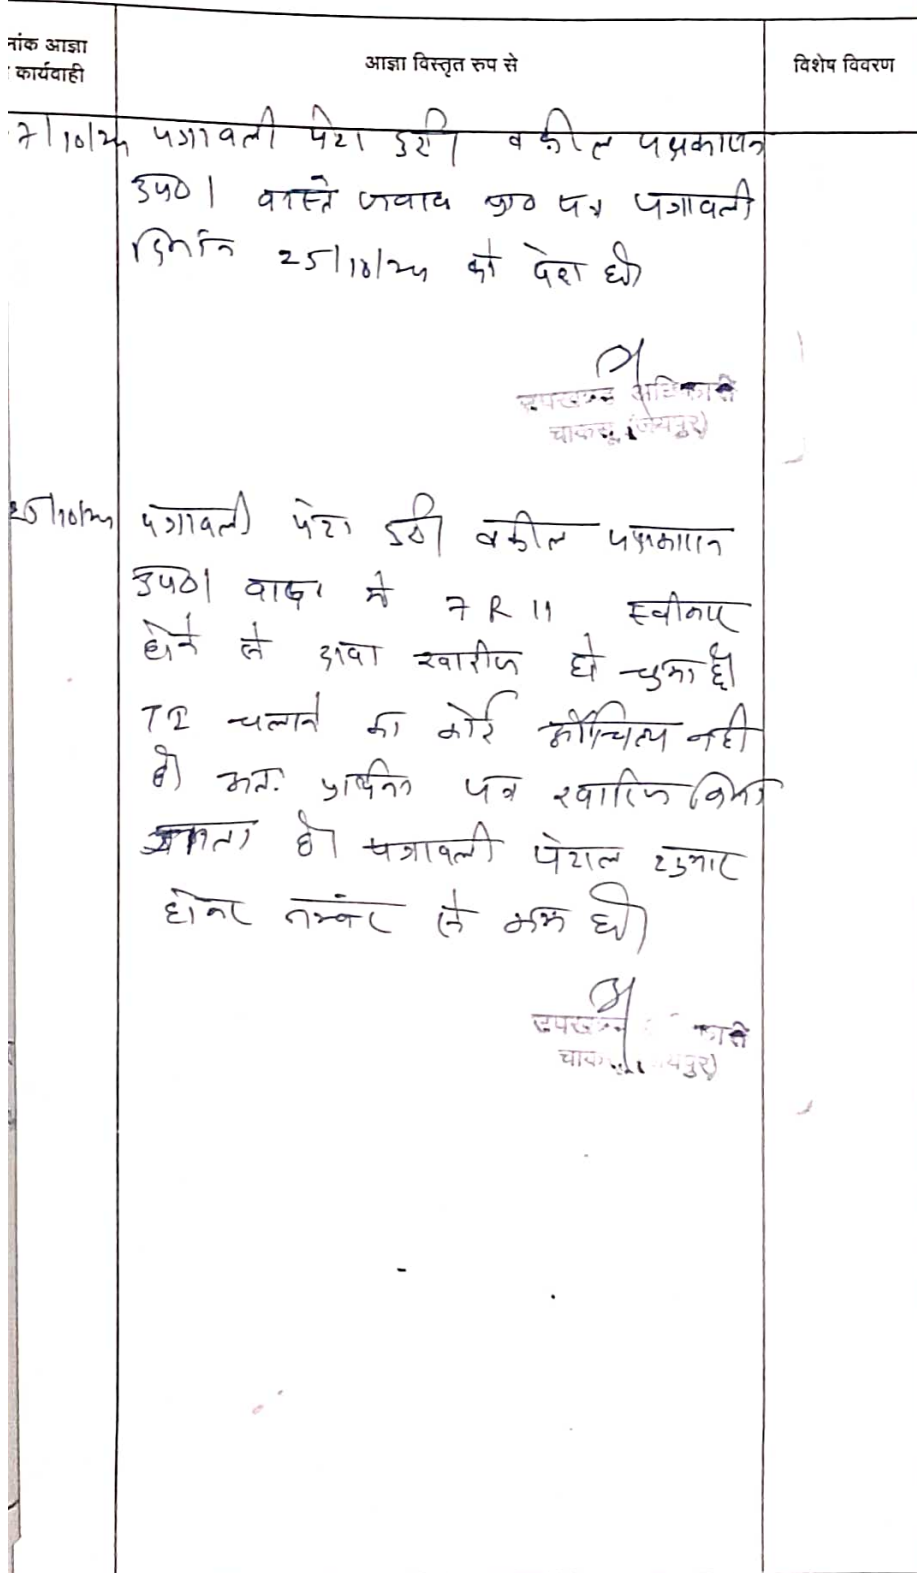 नांक आज्ञा
कार्यवाही
आज्ञा विस्तृत रुप से
विशेष विवरण
7/10/24 पत्रावली पेश हुई। वकील पक्षकारान
उप०। वास्ते जवाब प्रा० पत्र पत्रावली
दिनांक 25/10/24 को पेश हो।
उपखण्ड अधिकारी
चाकसू (जयपुर)
25/10/24 पत्रावली पेश हुई। वकील पक्षकारान
उप०। वाद में 7 R 11 स्वीकार
होने से दावा खारीज हो चुका है।
TI चलाने का कोई औचित्य नही
है। अतः प्रार्थना पत्र खारिज किया
जाता है। पत्रावली फैसल शुमार
होकर नम्बर से कम हो।
उपखण्ड कारी
चाकसू (जयपुर)